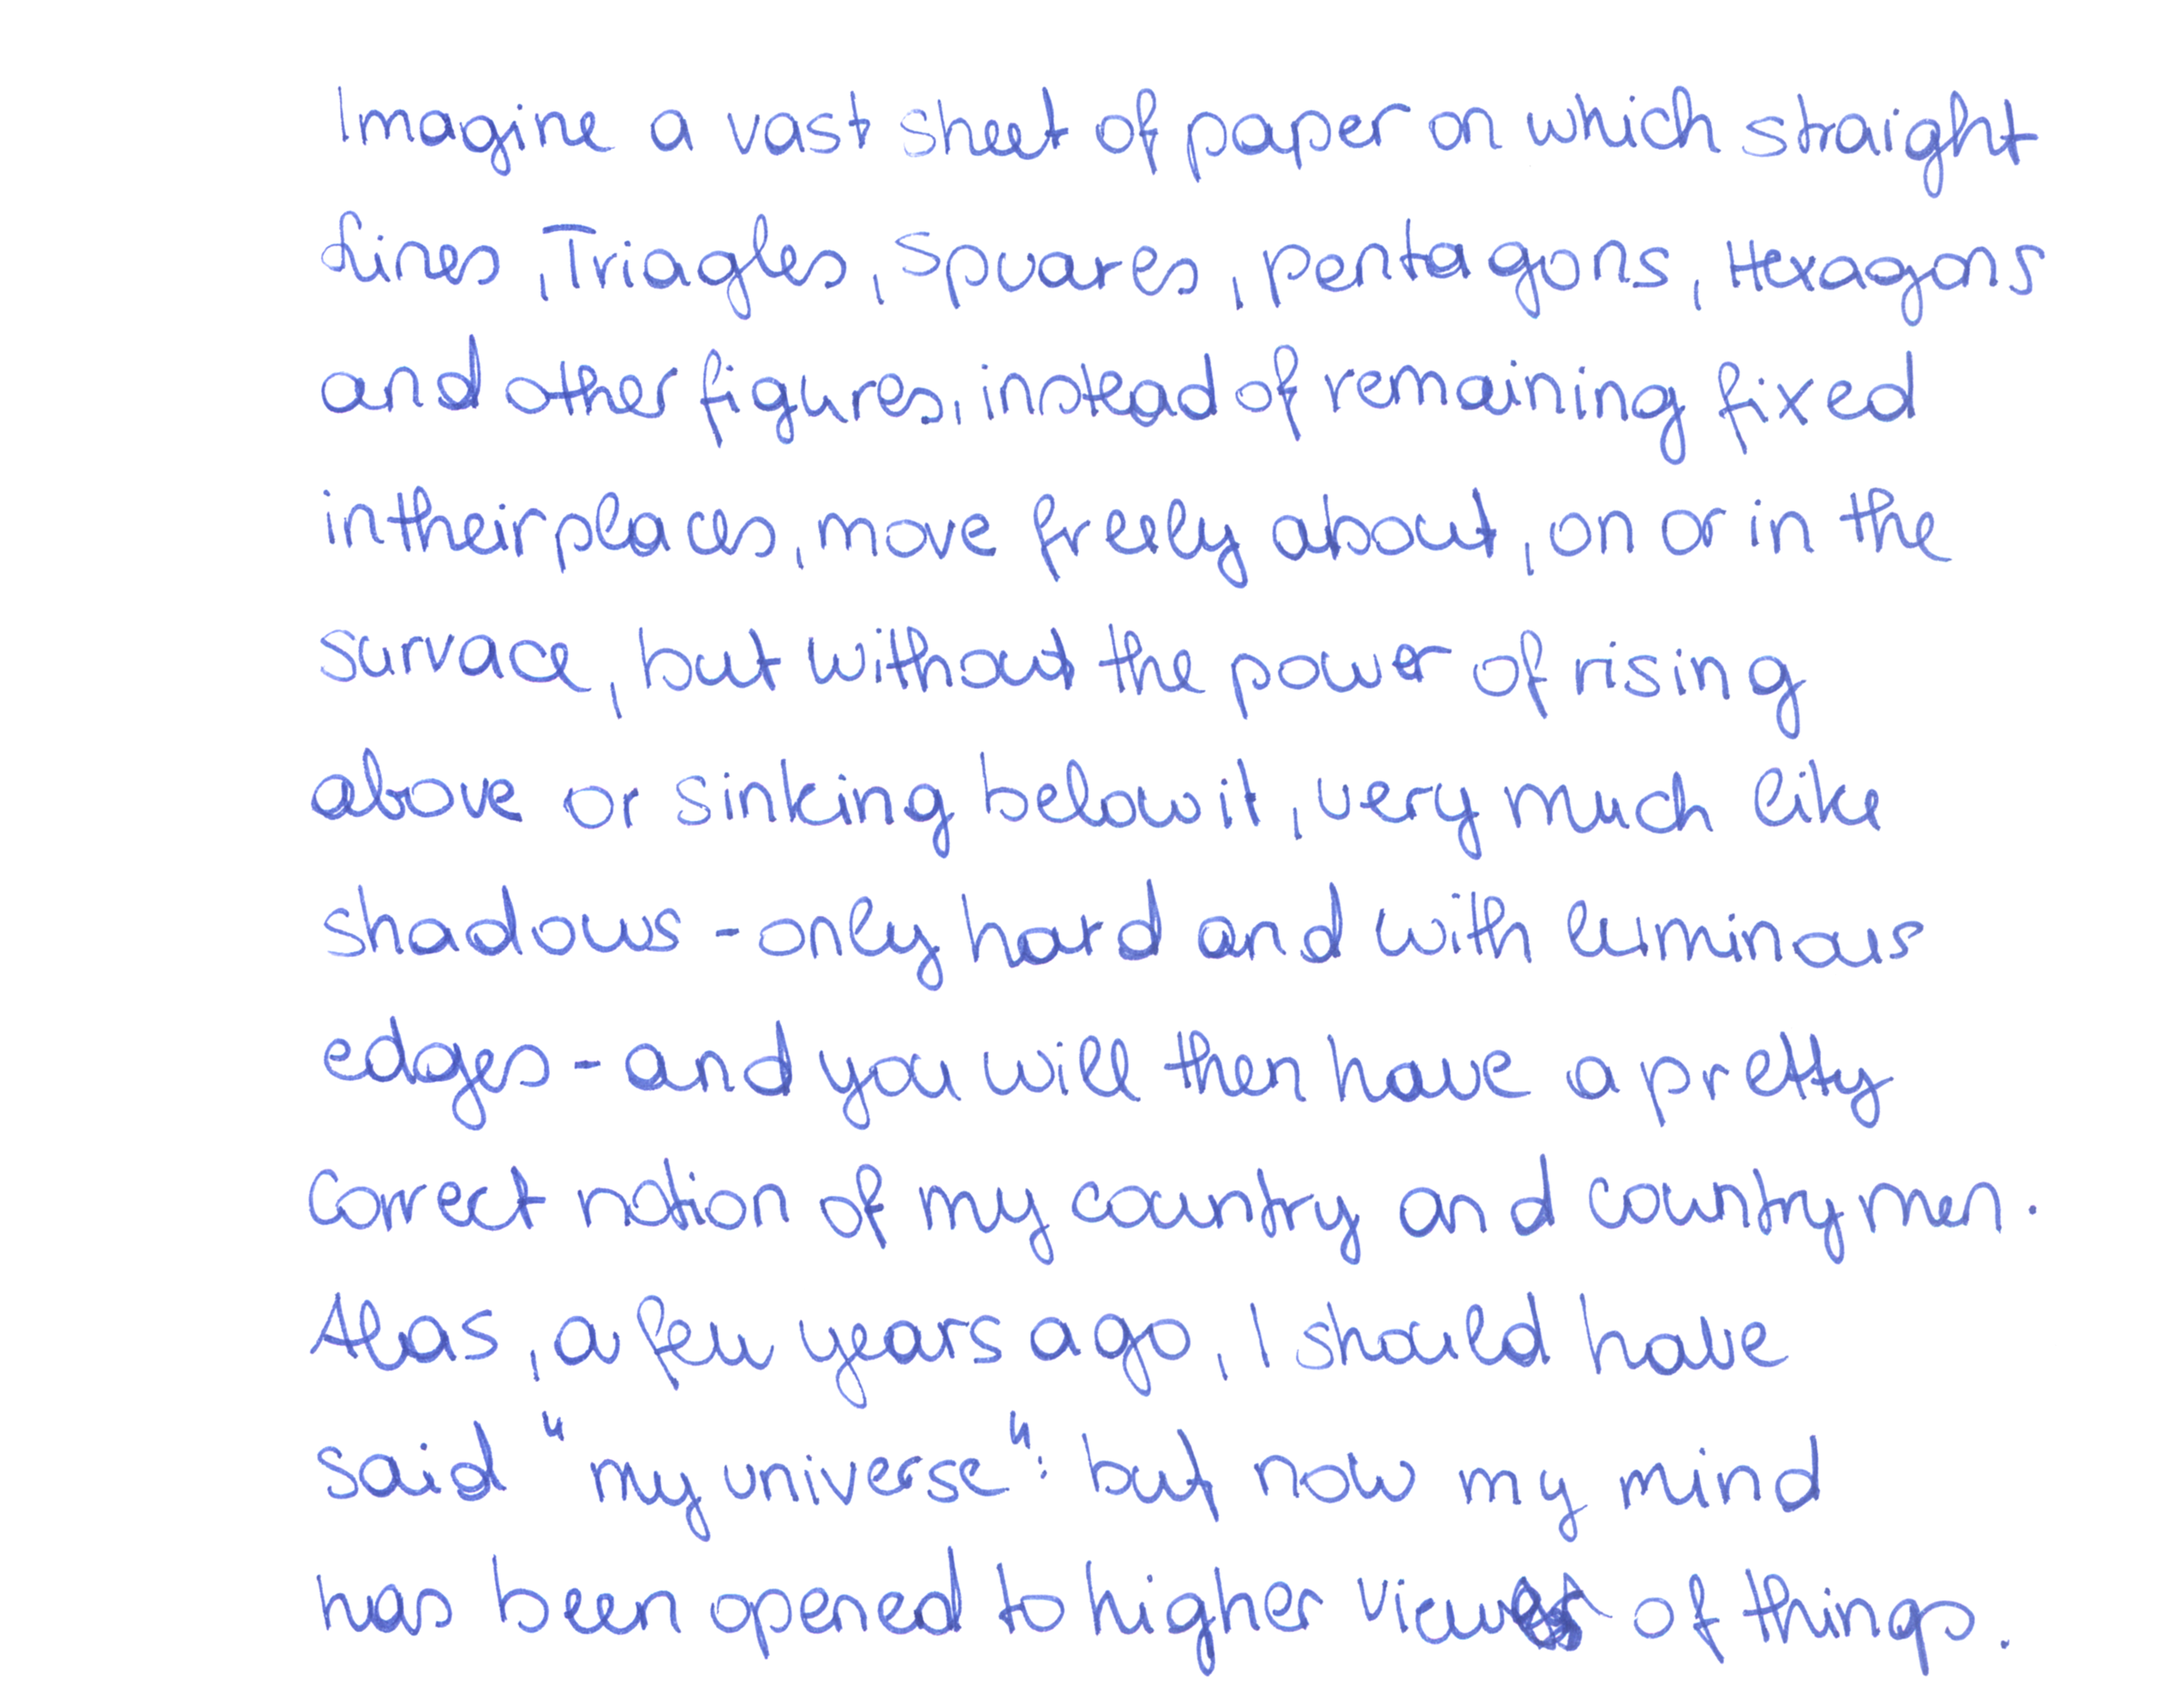 Imagine a vast sheet of paper on which straight
Lines, Triagles, Spuares, pentagons, Hexagons
and other figures, instead of remaining fixed
in their places, move freely about, on or in the
survace, but without the power of rising
above or sinking below it, very much like
shadows - only hard and with luminous
edges - and you will then have a pretty
correct notion of my country and countrymen.
Alas, a few years ago, I should have
said "my universe": but now my mind
has been opened to higher views of things.